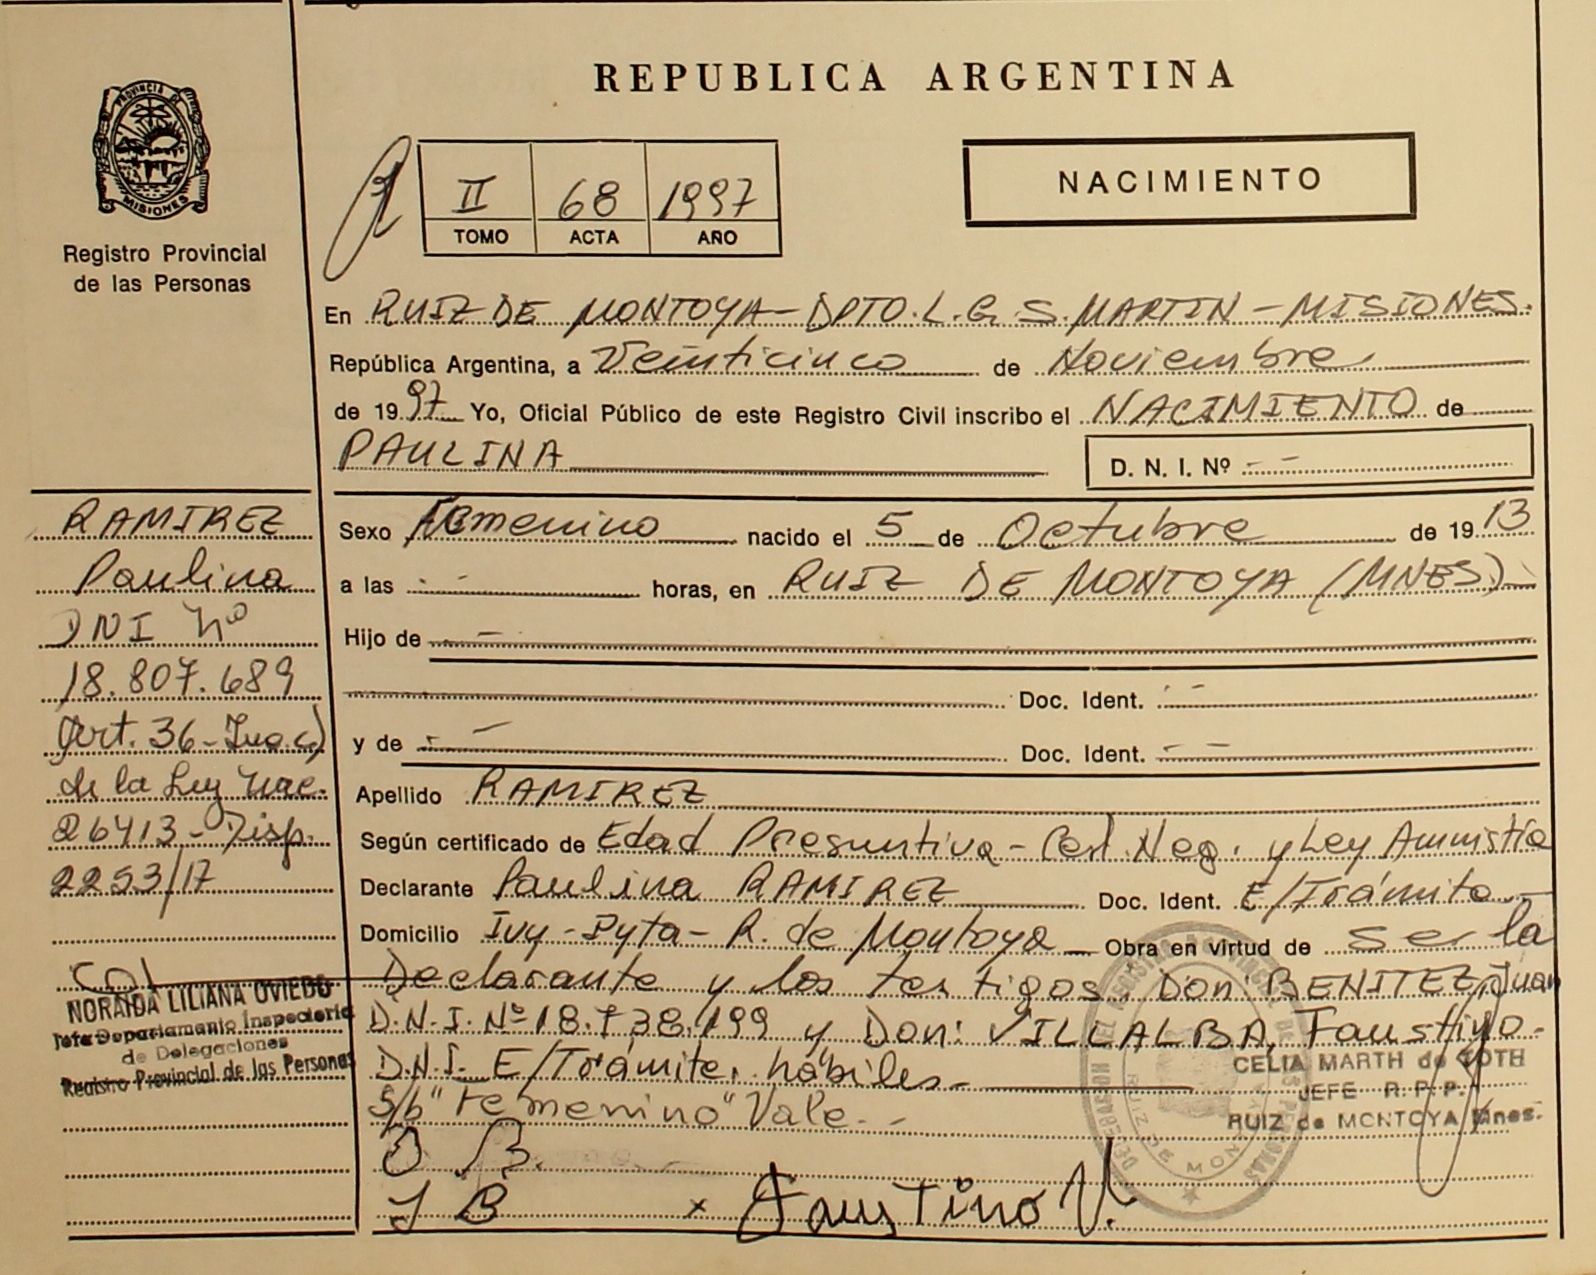 PROVINCIA DE
MISIONES
Registro Provincial
de las Personas
REPUBLICA ARGENTINA
II 68 1997
TOMO ACTA AÑO
NACIMIENTO
En RUIZ DE MONTOYA - DPTO. L.G.S. MARTIN - MISIONES.
República Argentina, a Veinticinco de Noviembre
de 1997 Yo, Oficial Público de este Registro Civil inscribo el NACIMIENTO de
PAULINA D. N. I. Nº - -
RAMIREZ
Paulina
DNI Nº
18.807.689
Art. 36 - Inc. c)
de la Ley Nac.
26413 - Disp.
2253/17
NORAIDA LILIANA OVIEDO
Jefa Departamento Inspectoria
de Delegaciones
Registro Provincial de las Personas
Sexo Femenino nacido el 5 de Octubre de 1913
a las - - horas, en RUIZ DE MONTOYA (MNES)
Hijo de - -
Doc. Ident. - -
y de - - Doc. Ident. - -
Apellido RAMIREZ
Según certificado de Edad Presuntiva - Cert. Neg. y Ley Amnistía
Declarante Paulina RAMIREZ Doc. Ident. E/Trámite
Domicilio Ivy-Pyta - R. de Montoya Obra en virtud de ser la
Declarante y los testigos. Don BENITEZ, Juan
D.N.I. Nº 18.738.199 y Don: VILLALBA, Faustino-
D.N.I. E/Trámite, hábiles-
S/b "Femenino" Vale.-
CELIA MARTH de TOTH
JEFE R. P. P.
RUIZ de MONTOYA Mnes.
J B × Faustino V.